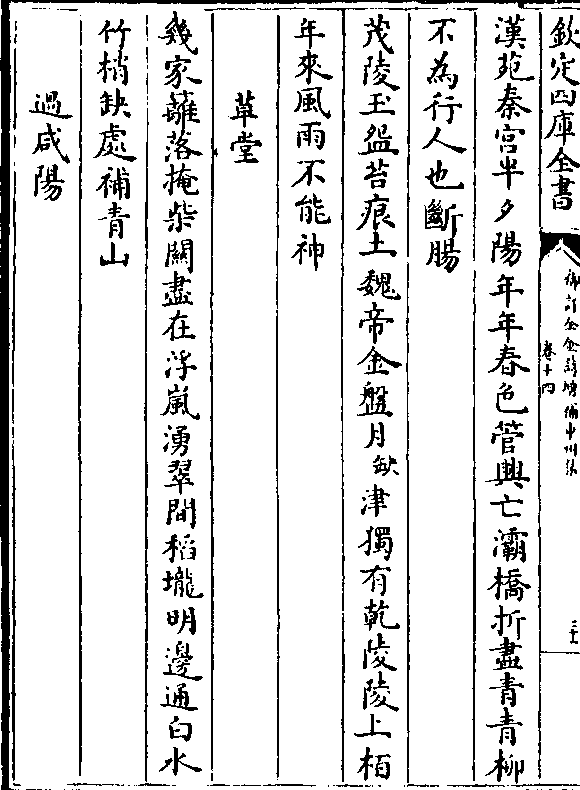 欽定四庫全書
御訂全金詩增補中州集
卷十四
漢苑秦宫半夕陽年年春色管興亡灞橋折盡青青柳
不為行人也斷腸
茂陵玉盌苔痕土魏帝金盤月缺津獨有乾陵陵上栢
年來風雨不能神
草堂
幾家蘺落掩柴闗盡在浮嵐湧翠間稻壠明邊通白水
竹梢缺處補青山
過咸陽